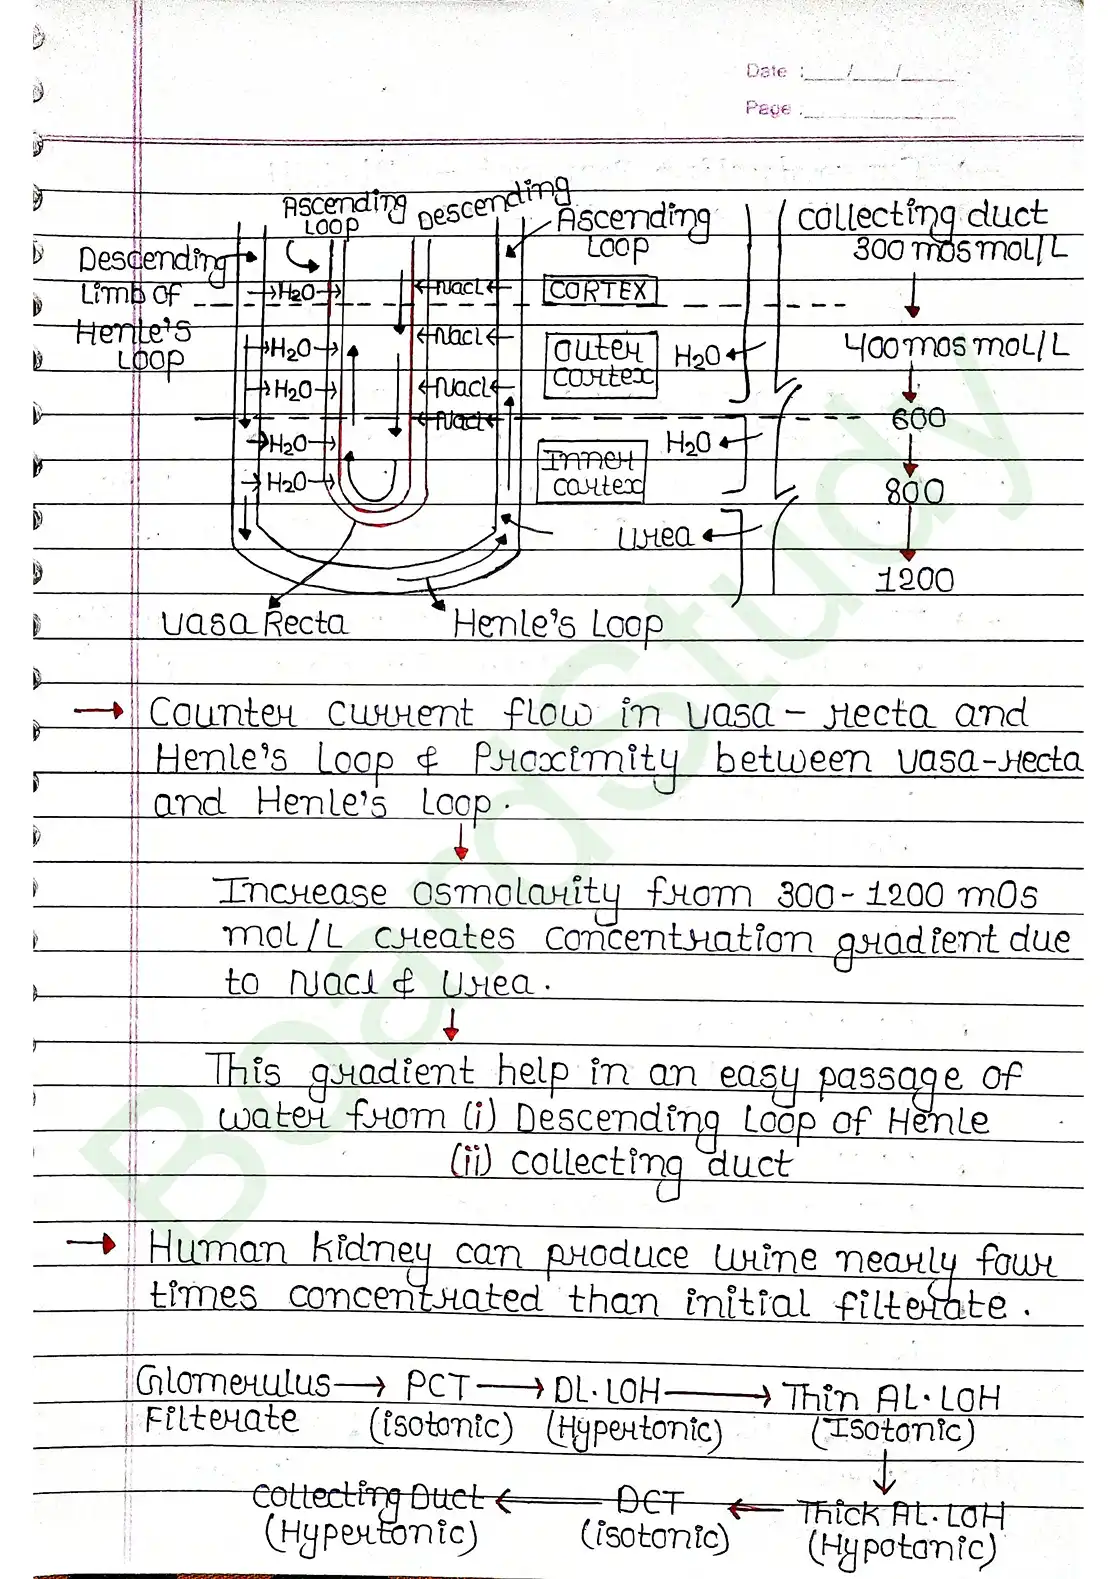 Date :___/___/____
Page :____________
Ascending
Loop
Descending
Ascending
Loop
collecting duct
300 mosmol/L
Descending
Limb of
Henle's
Loop
H₂O
Nacl
CORTEX
H₂O
Nacl
outer
cortex
H₂O
400 mosmol/L
H₂O
Nacl
Nacl
600
H₂O
H₂O
Inner
cortex
H₂O
800
Urea
1200
vasa Recta
Henle's Loop
→ Counter current flow in vasa - recta and
Henle's Loop & Proximity between vasa-recta
and Henle's Loop.
Increase osmolarity from 300-1200 mOs
mol/L creates concentration gradient due
to Nacl & Urea.
This gradient help in an easy passage of
water from (i) Descending Loop of Henle
(ii) collecting duct
→ Human kidney can produce urine nearly four
times concentrated than initial filterate.
Glomerulus → PCT → DL.LOH → Thin AL.LOH
Filterate (isotonic) (Hypertonic) (Isotonic)
collecting Duct ← DCT ← Thick AL.LOH
(Hypertonic) (isotonic) (Hypotonic)
BoardStudy